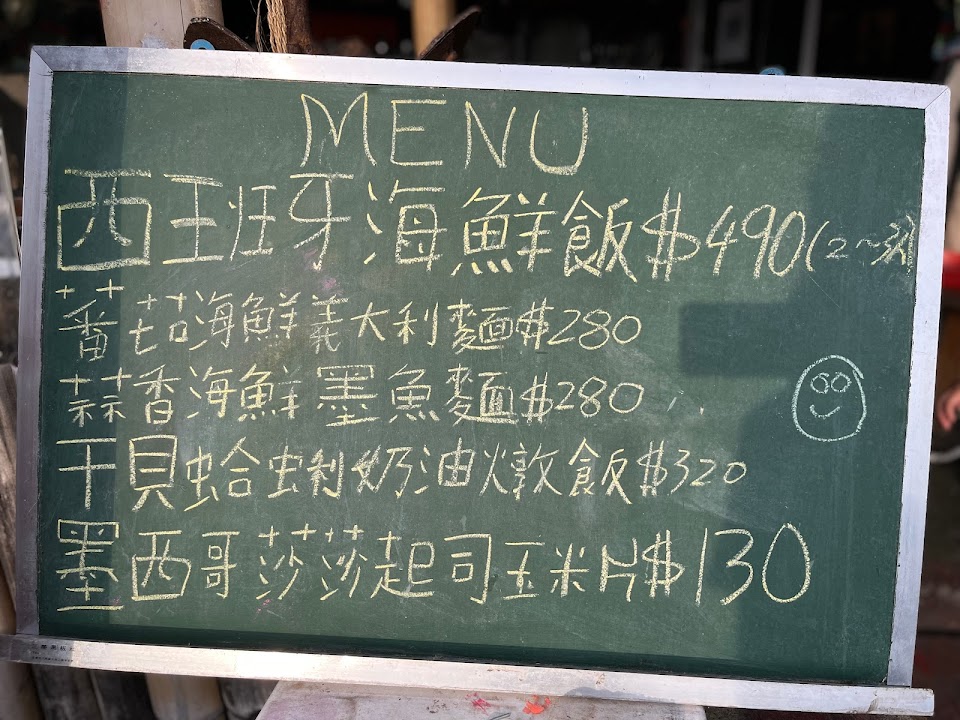 MENU
西班牙海鮮飯$490(2~3人)
蕃茄海鮮義大利麵$280
蒜香海鮮墨魚麵$280
干貝蛤蜊奶油燉飯$320
墨西哥莎莎起司玉米片$130